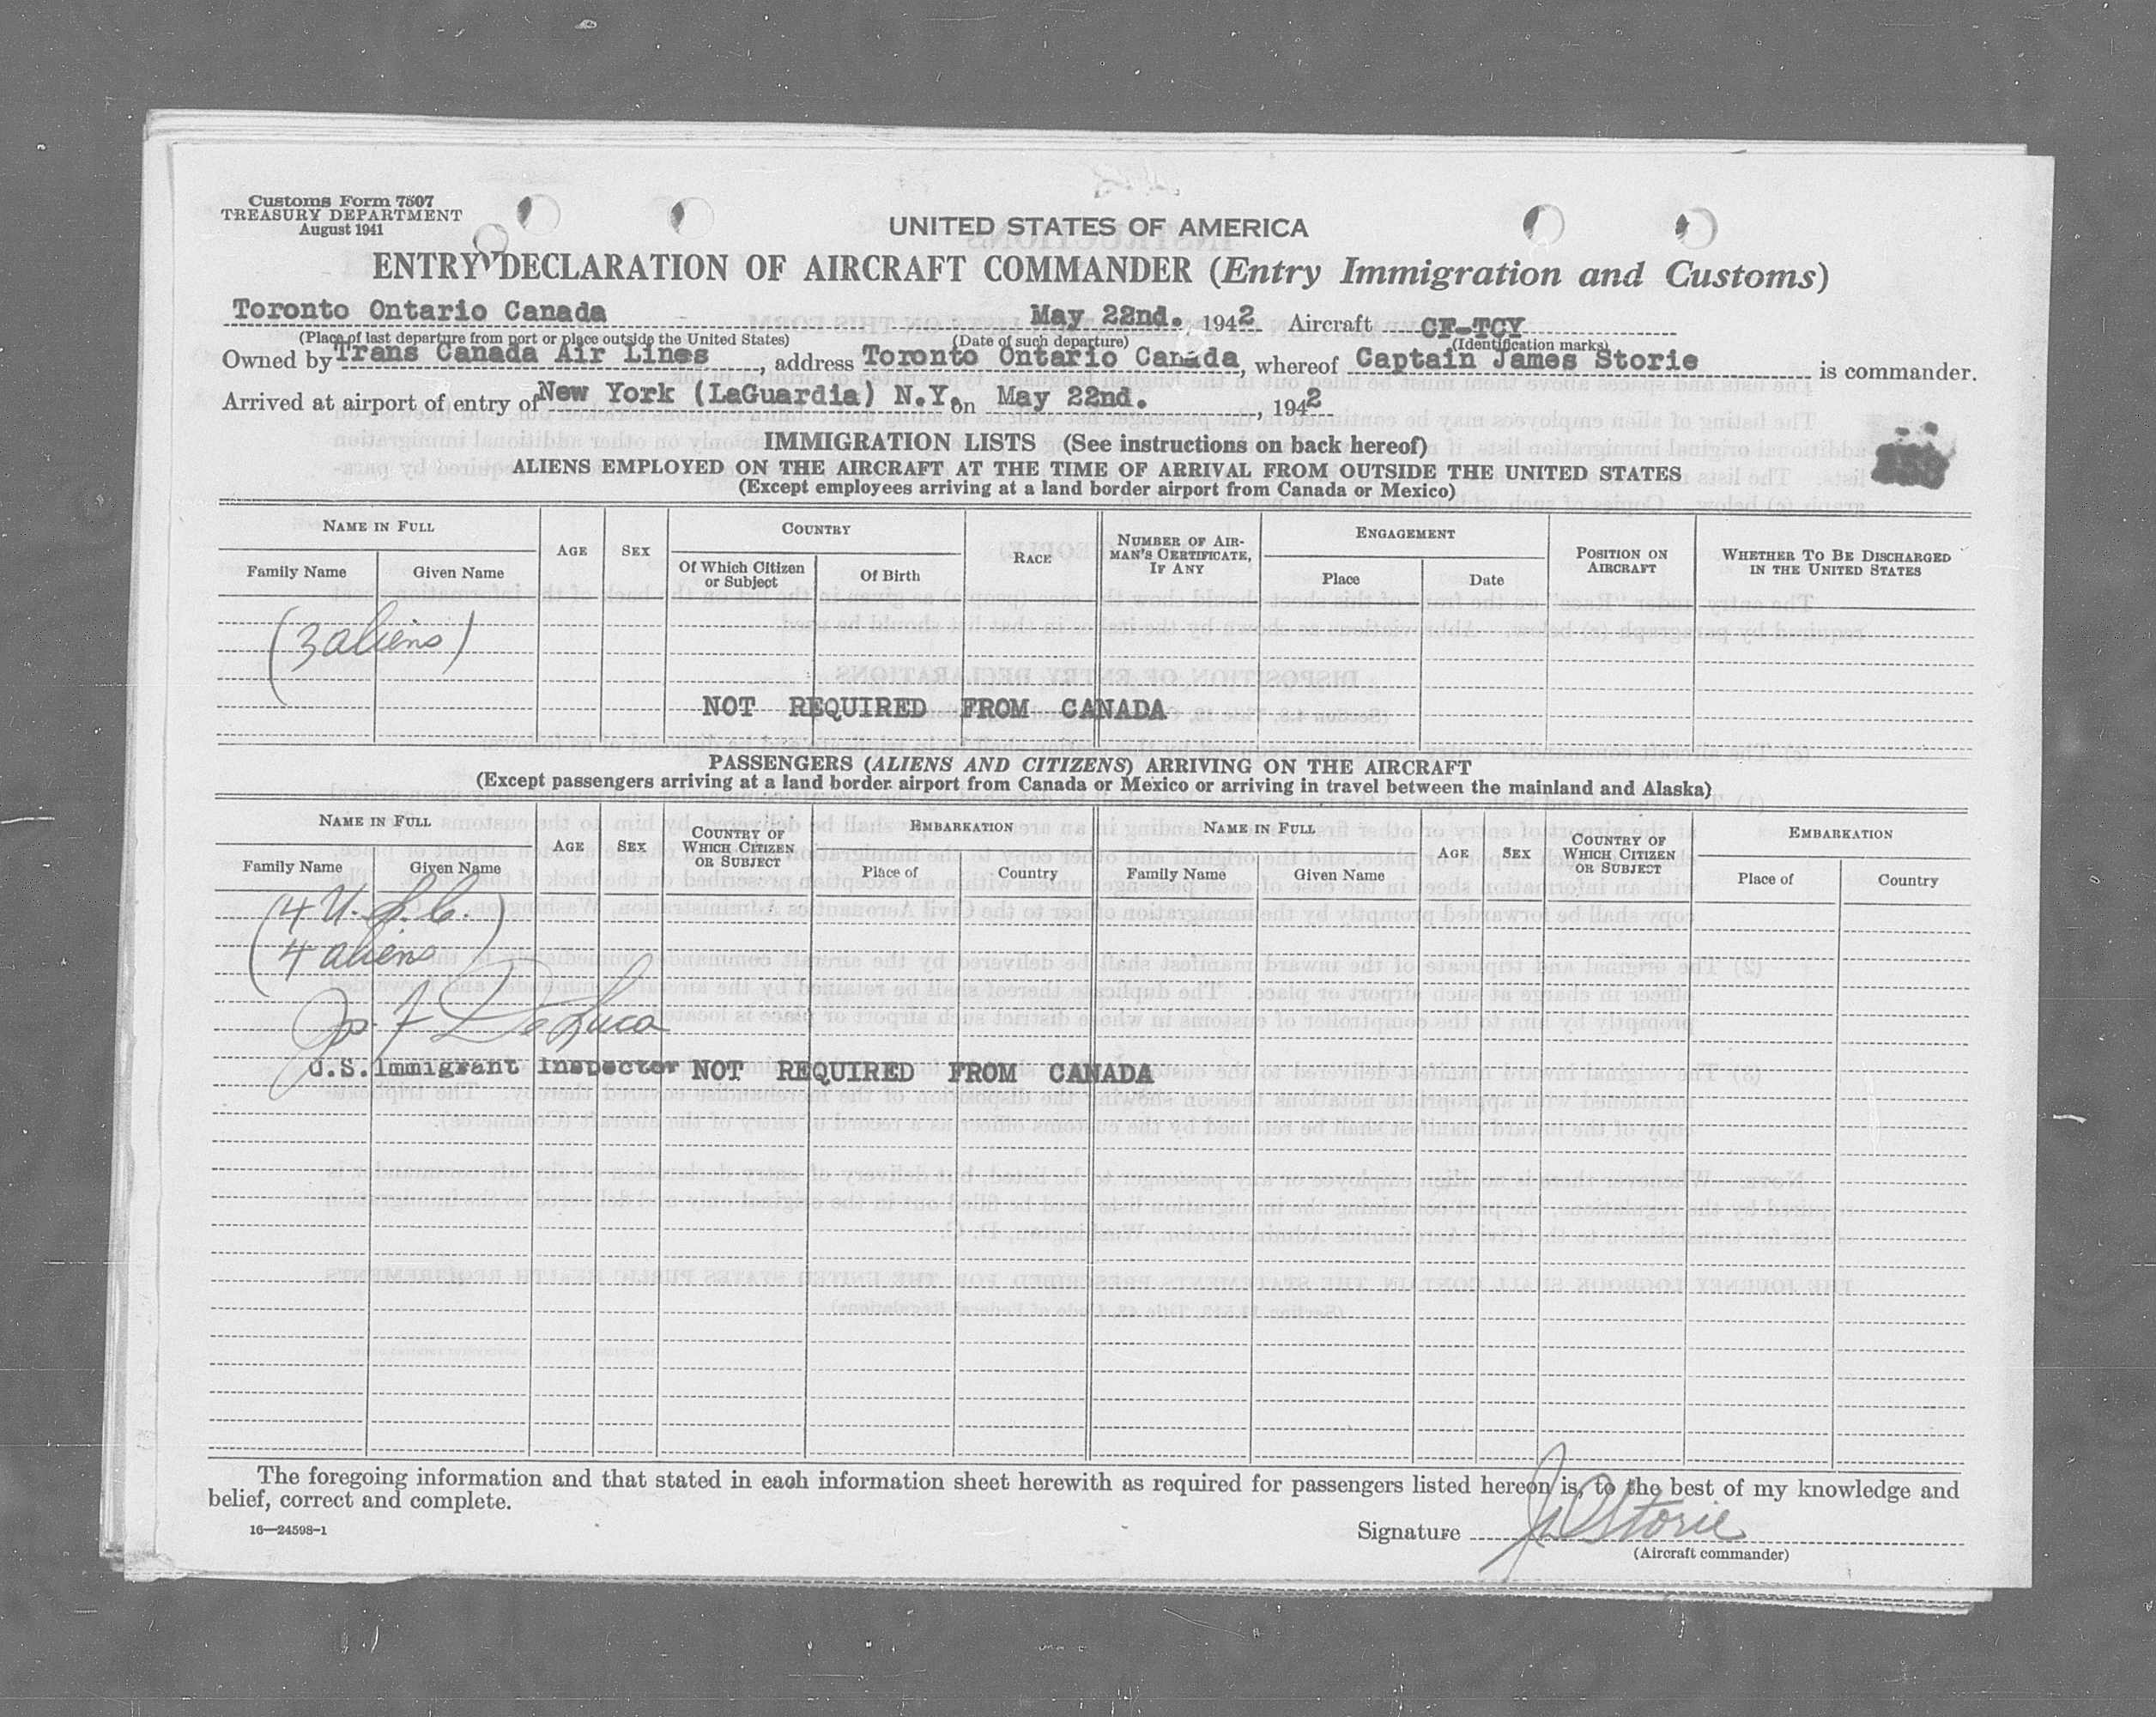 Customs Form 7507
TREASURY DEPARTMENT
August 1941
UNITED STATES OF AMERICA
ENTRY DECLARATION OF AIRCRAFT COMMANDER (Entry Immigration and Customs)
Toronto Ontario Canada May 22nd. 1942 Aircraft CF-TCY
(Place of last departure from port or place outside the United States) (Date of such departure) (Identification marks)
Owned by Trans Canada Air Lines, address Toronto Ontario Canada, whereof Captain James Storie is commander.
Arrived at airport of entry of New York (LaGuardia) N.Y. on May 22nd., 1942
IMMIGRATION LISTS (See instructions on back hereof)
ALIENS EMPLOYED ON THE AIRCRAFT AT THE TIME OF ARRIVAL FROM OUTSIDE THE UNITED STATES
(Except employees arriving at a land border airport from Canada or Mexico)
NAME IN FULL
Family Name Given Name
AGE
SEX
COUNTRY
Of Which Citizen or Subject
Of Birth
RACE
NUMBER OF AIR-
MAN'S CERTIFICATE,
IF ANY
ENGAGEMENT
Place Date
POSITION ON
AIRCRAFT
WHETHER TO BE DISCHARGED
IN THE UNITED STATES
(3 aliens)
NOT REQUIRED FROM CANADA
PASSENGERS (ALIENS AND CITIZENS) ARRIVING ON THE AIRCRAFT
(Except passengers arriving at a land border airport from Canada or Mexico or arriving in travel between the mainland and Alaska)
NAME IN FULL
Family Name Given Name
AGE
SEX
COUNTRY OF
WHICH CITIZEN
OR SUBJECT
EMBARKATION
Place of Country
NAME IN FULL
Family Name Given Name
AGE
SEX
COUNTRY OF
WHICH CITIZEN
OR SUBJECT
EMBARKATION
Place of Country
(4 U.S.C.
4 aliens)
Jos. F DeLuca
U.S. Immigrant Inspector NOT REQUIRED FROM CANADA
The foregoing information and that stated in each information sheet herewith as required for passengers listed hereon is, to the best of my knowledge and
belief, correct and complete.
16—24598-1
Signature J Storie
(Aircraft commander)